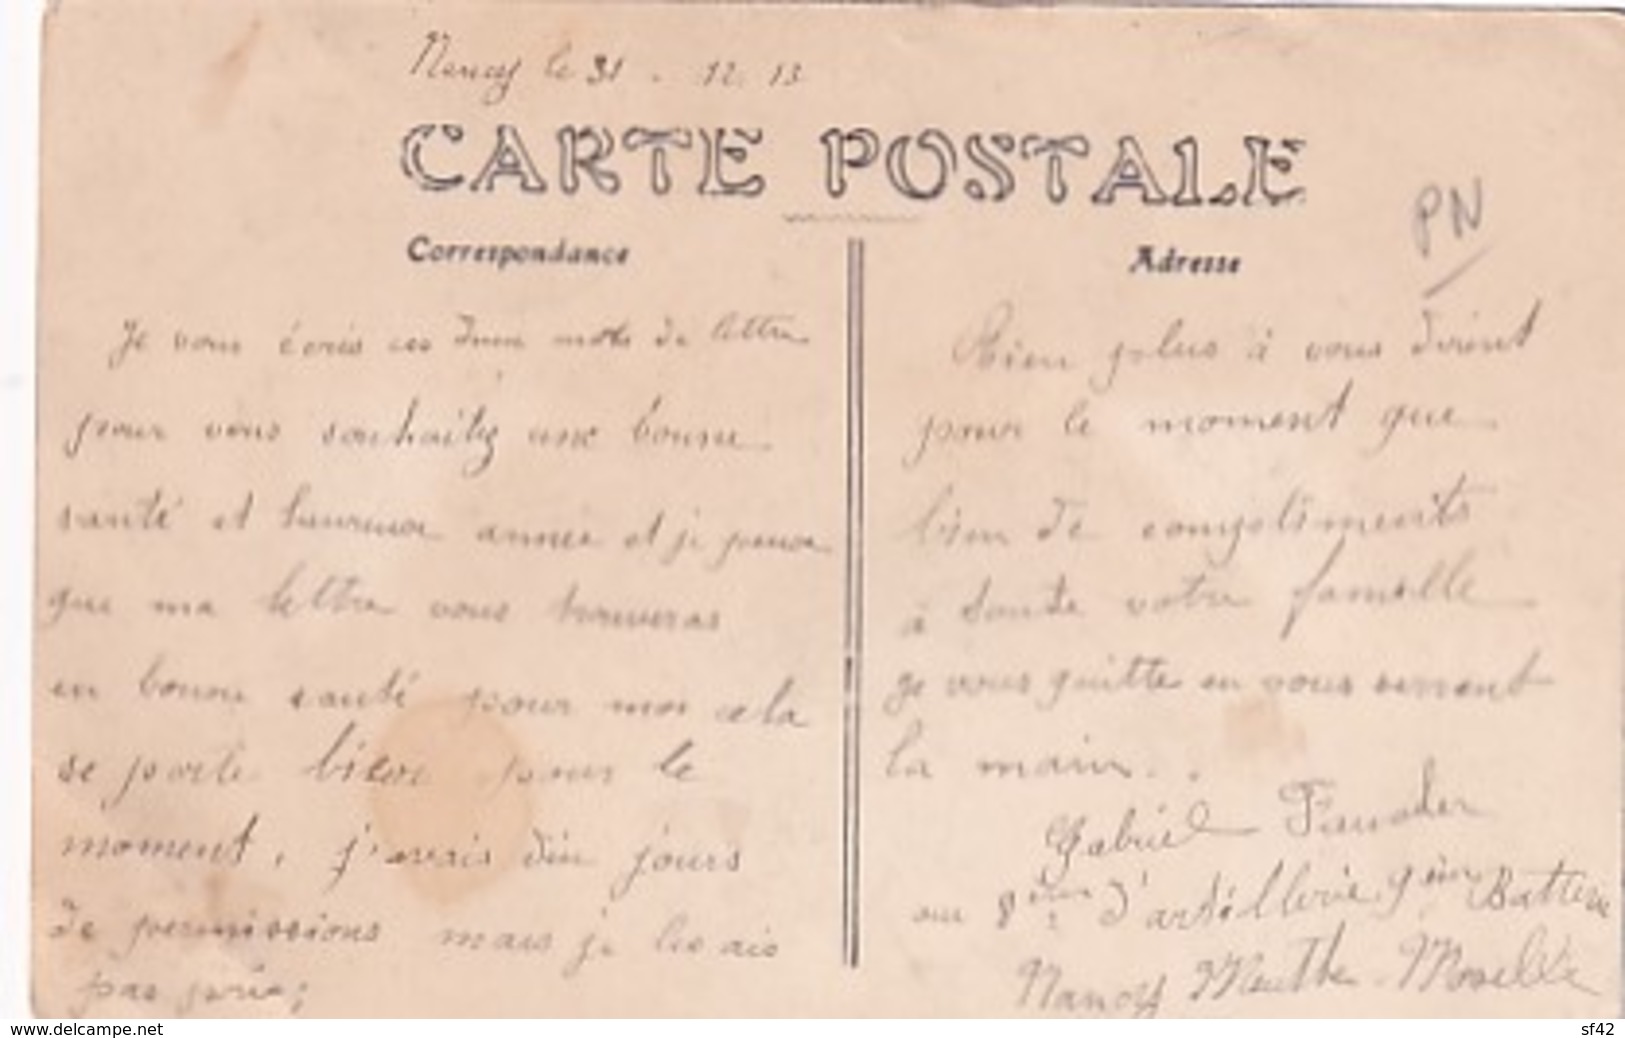 Nancy le 31 . 12. 13
CARTE POSTALE
PN
Correspondance
Je vous écris ces deux mots de lettre
pour vous souhaitez une bonne
santé et heureuse année et je pense
que ma lettre vous trouveras
en bonne santé pour moi cela
se porte bien pour le
moment, j'avais dix jours
de permissions mais je les ais
pas pris;
Adresse
Rien plus à vous dirent
pour le moment que
bien de compliments
à toute votre famille
je vous quitte en vous serrent
la main..
Gabriel
au 8ème d'artillerie 9ème Batterie
Nancy Meurthe-Moselle
www.delcampe.net
sf42